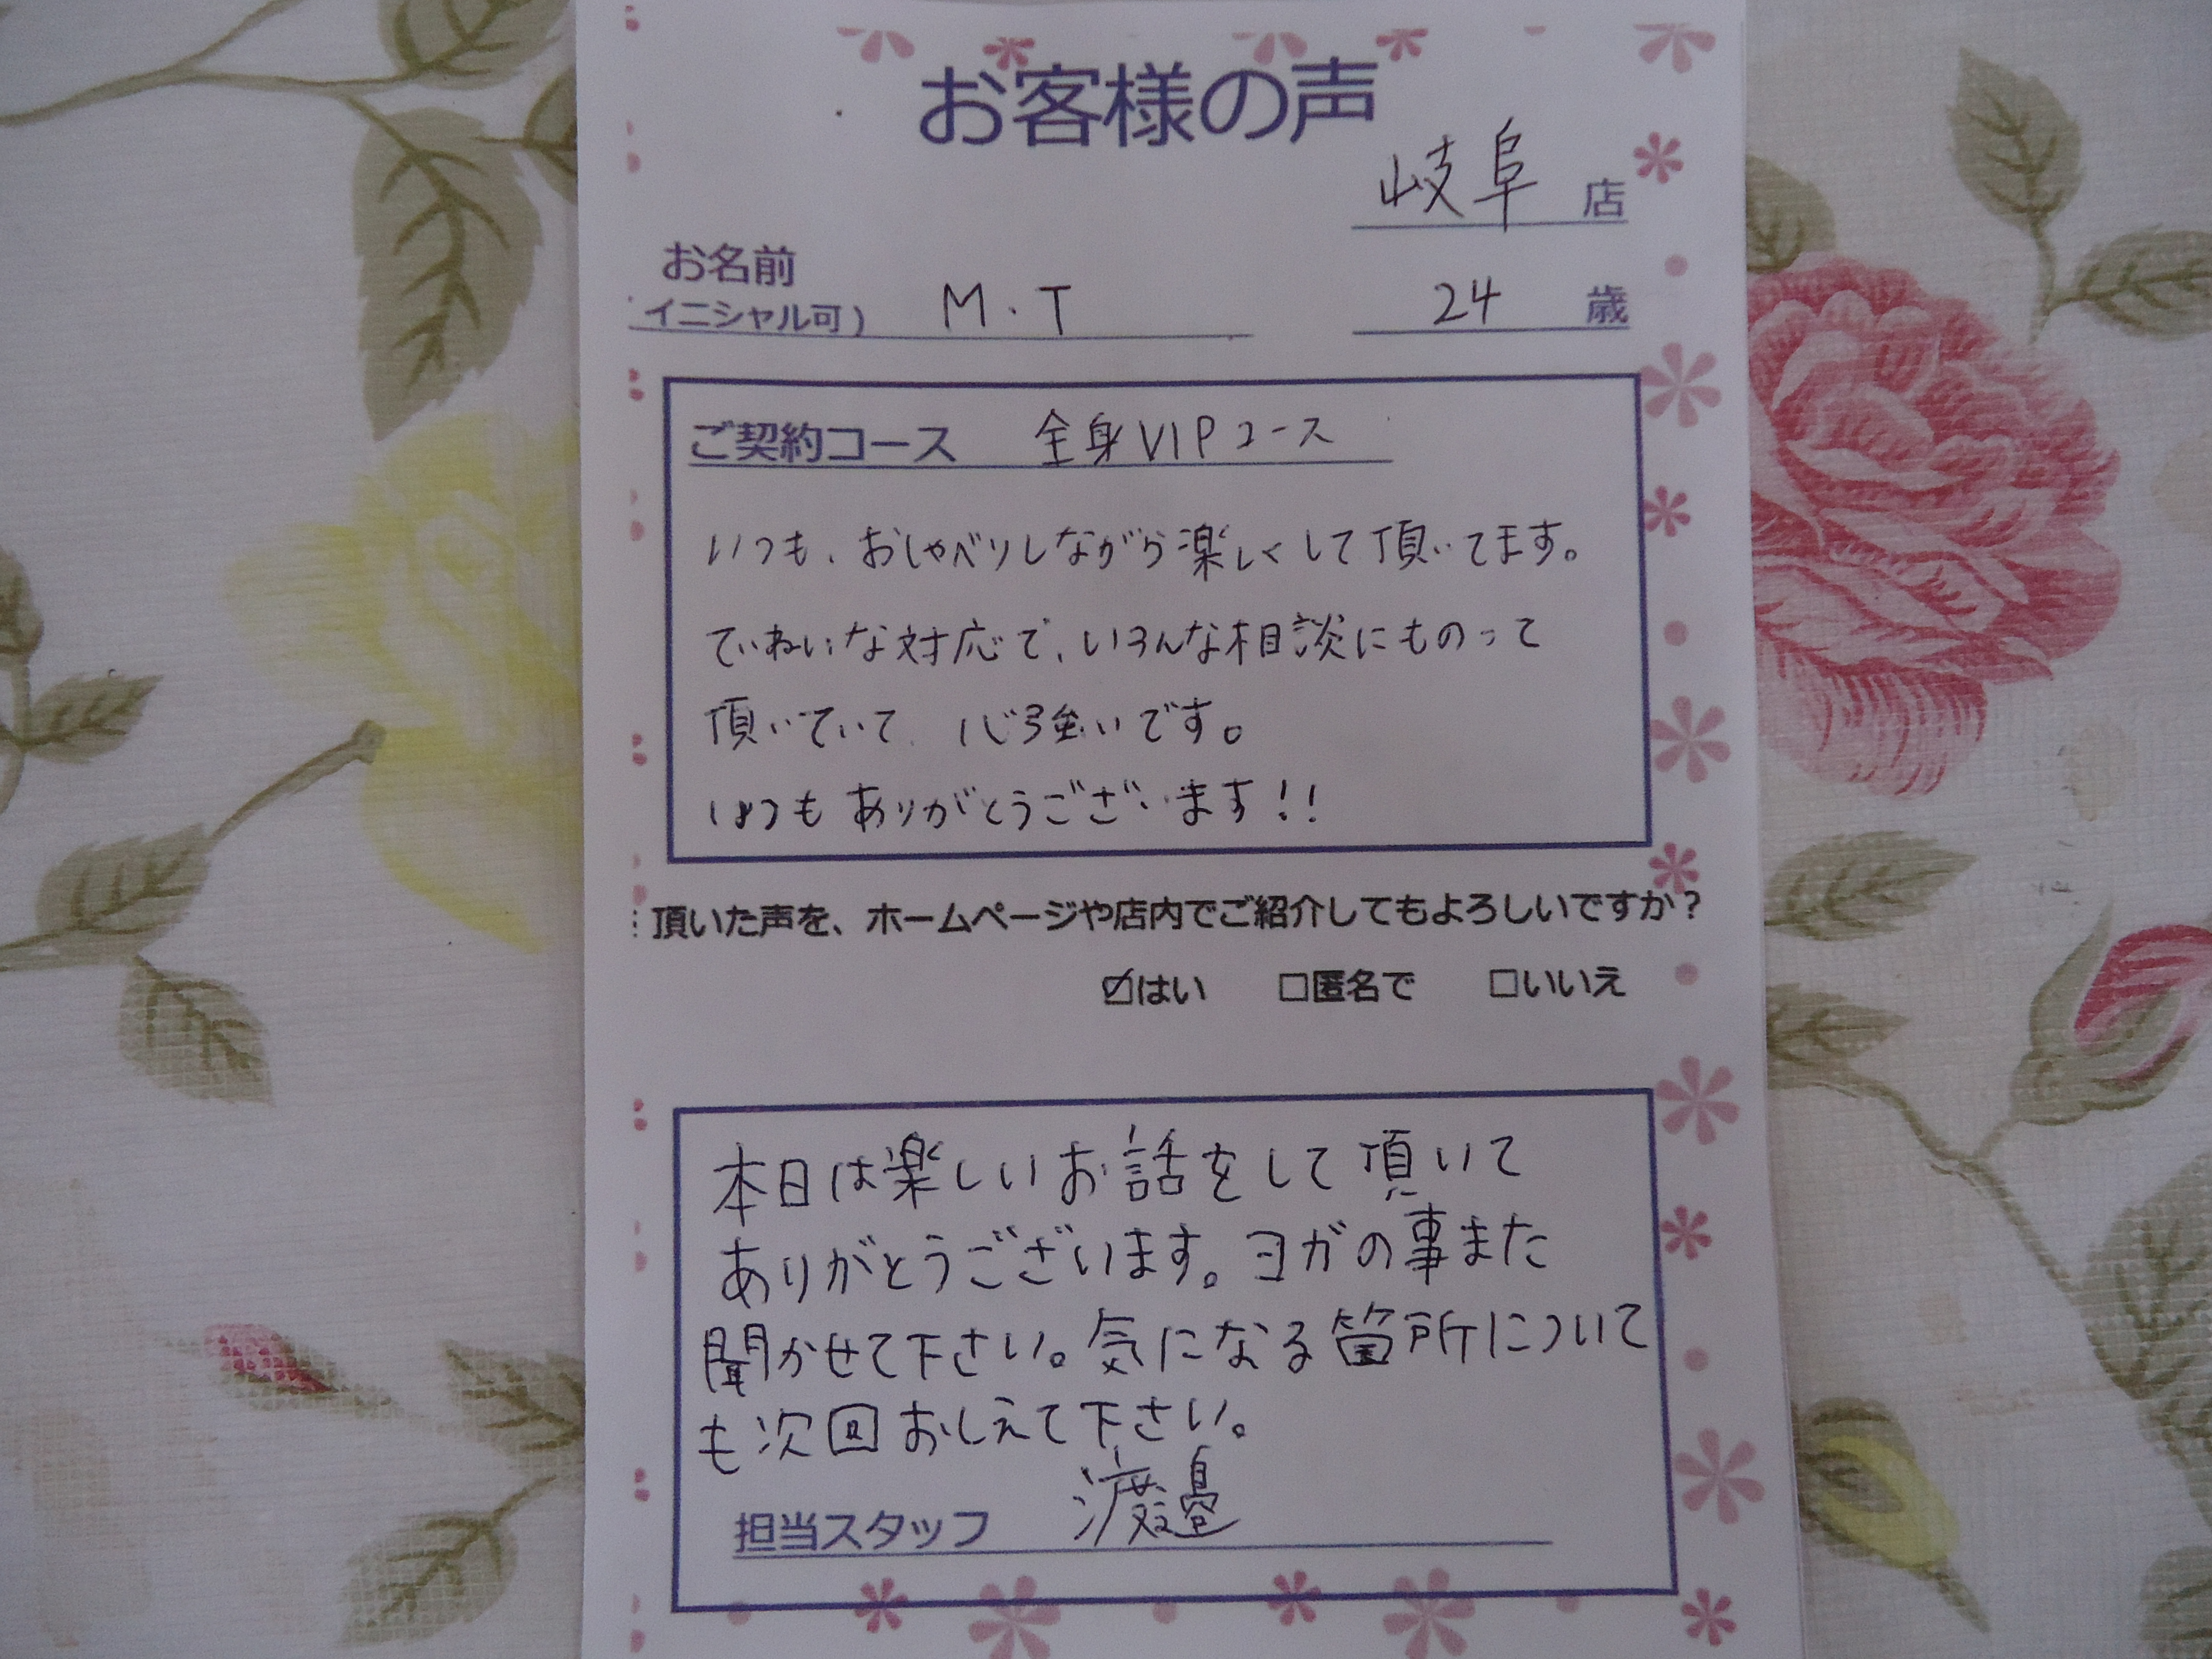 お客様の声
岐阜 店
お名前
(イニシャル可) M.T 24 歳
ご契約コース 全身VIPコース
いつも、おしゃべりしながら楽しくして頂いてます。
ていねいな対応で、いろんな相談にものって
頂いていて、心強いです。
いつもありがとうございます!!
頂いた声を、ホームページや店内でご紹介してもよろしいですか?
☑はい □匿名で □いいえ
本日は楽しいお話をして頂いて
ありがとうございます。ヨガの事また
聞かせて下さい。気になる箇所について
も次回おしえて下さい。
担当スタッフ 渡邉